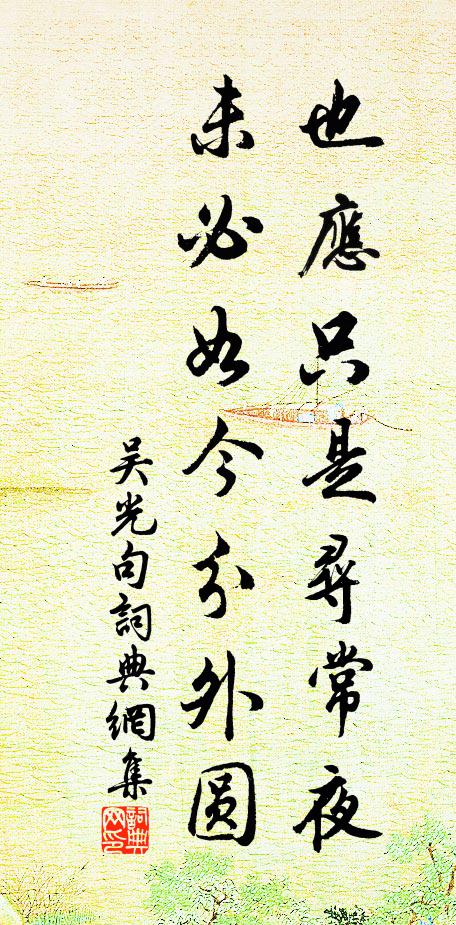 也應只是尋常夜
未必如今分外圓
吴光句詞典網集
詞典網印